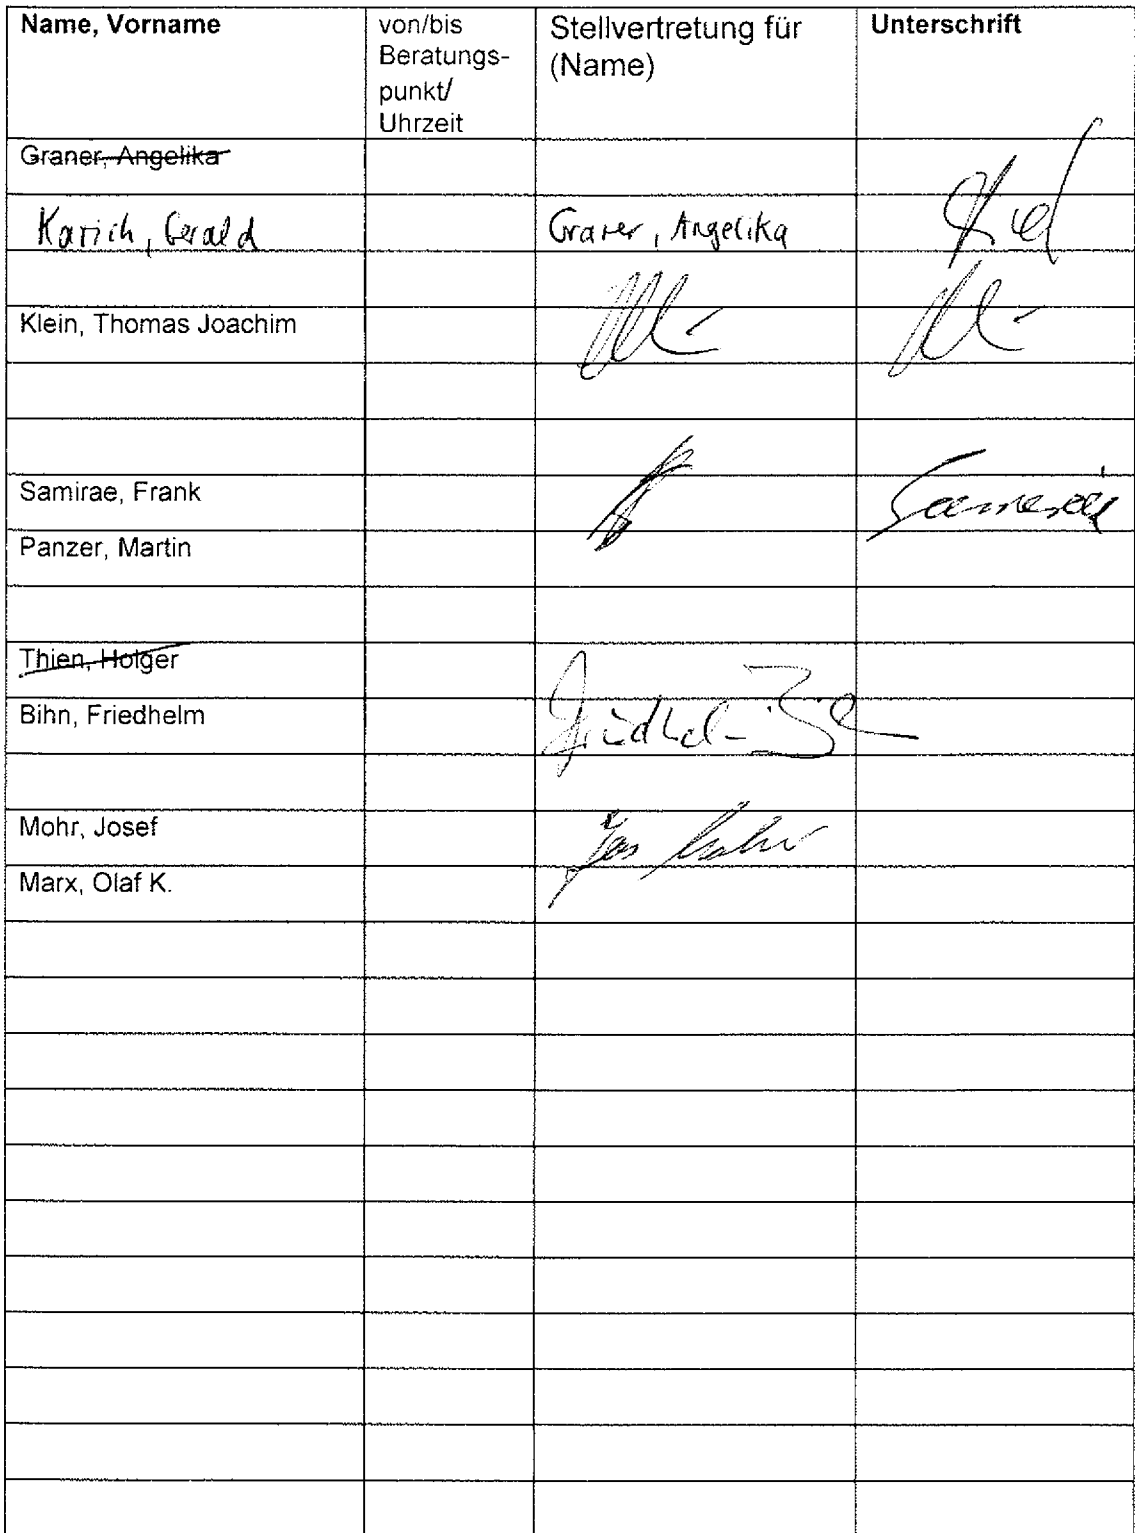 Name, Vorname
von/bis
Beratungs-
punkt/
Uhrzeit
Stellvertretung für
(Name)
Unterschrift
Graner, Angelika
Karich, Gerald
Graner, Angelika
Klein, Thomas Joachim
Samirae, Frank
Samirae
Panzer, Martin
Thien, Holger
Bihn, Friedhelm
Mohr, Josef
Jos Mohr
Marx, Olaf K.